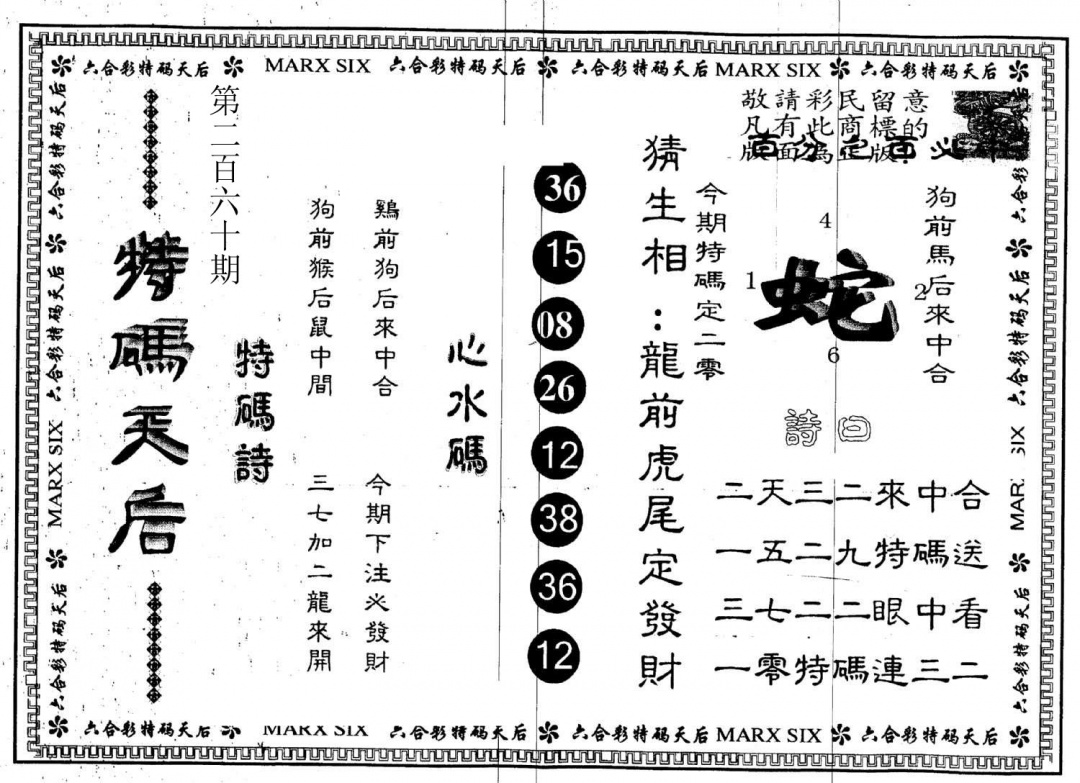 六合彩特码天后 MARX SIX 六合彩特码天后 六合彩特码天后 MARX SIX 六合彩特码天后
敬請彩民留意
凡有此商標的
版面為正版
狗前馬后來中合
蛇
4
1
2
6
今期特碼定二零
猜生相：龍前虎尾定發財
詩曰
二天三二來中合
一五二九特碼送
三七二二眼中看
一零特碼連三二
36
15
08
26
12
38
36
12
心水碼
鷄前狗后來中合
今期下注必發財
狗前猴后鼠中間
三七加二龍來開
特碼詩
第二百六十期
特碼天后
六合彩特码天后 MARX SIX 六合彩特码天后 六合彩特码天后
六合彩特码天后 MARX SIX 六合彩特码天后 六合彩特码天后 MARX SIX 六合彩特码天后